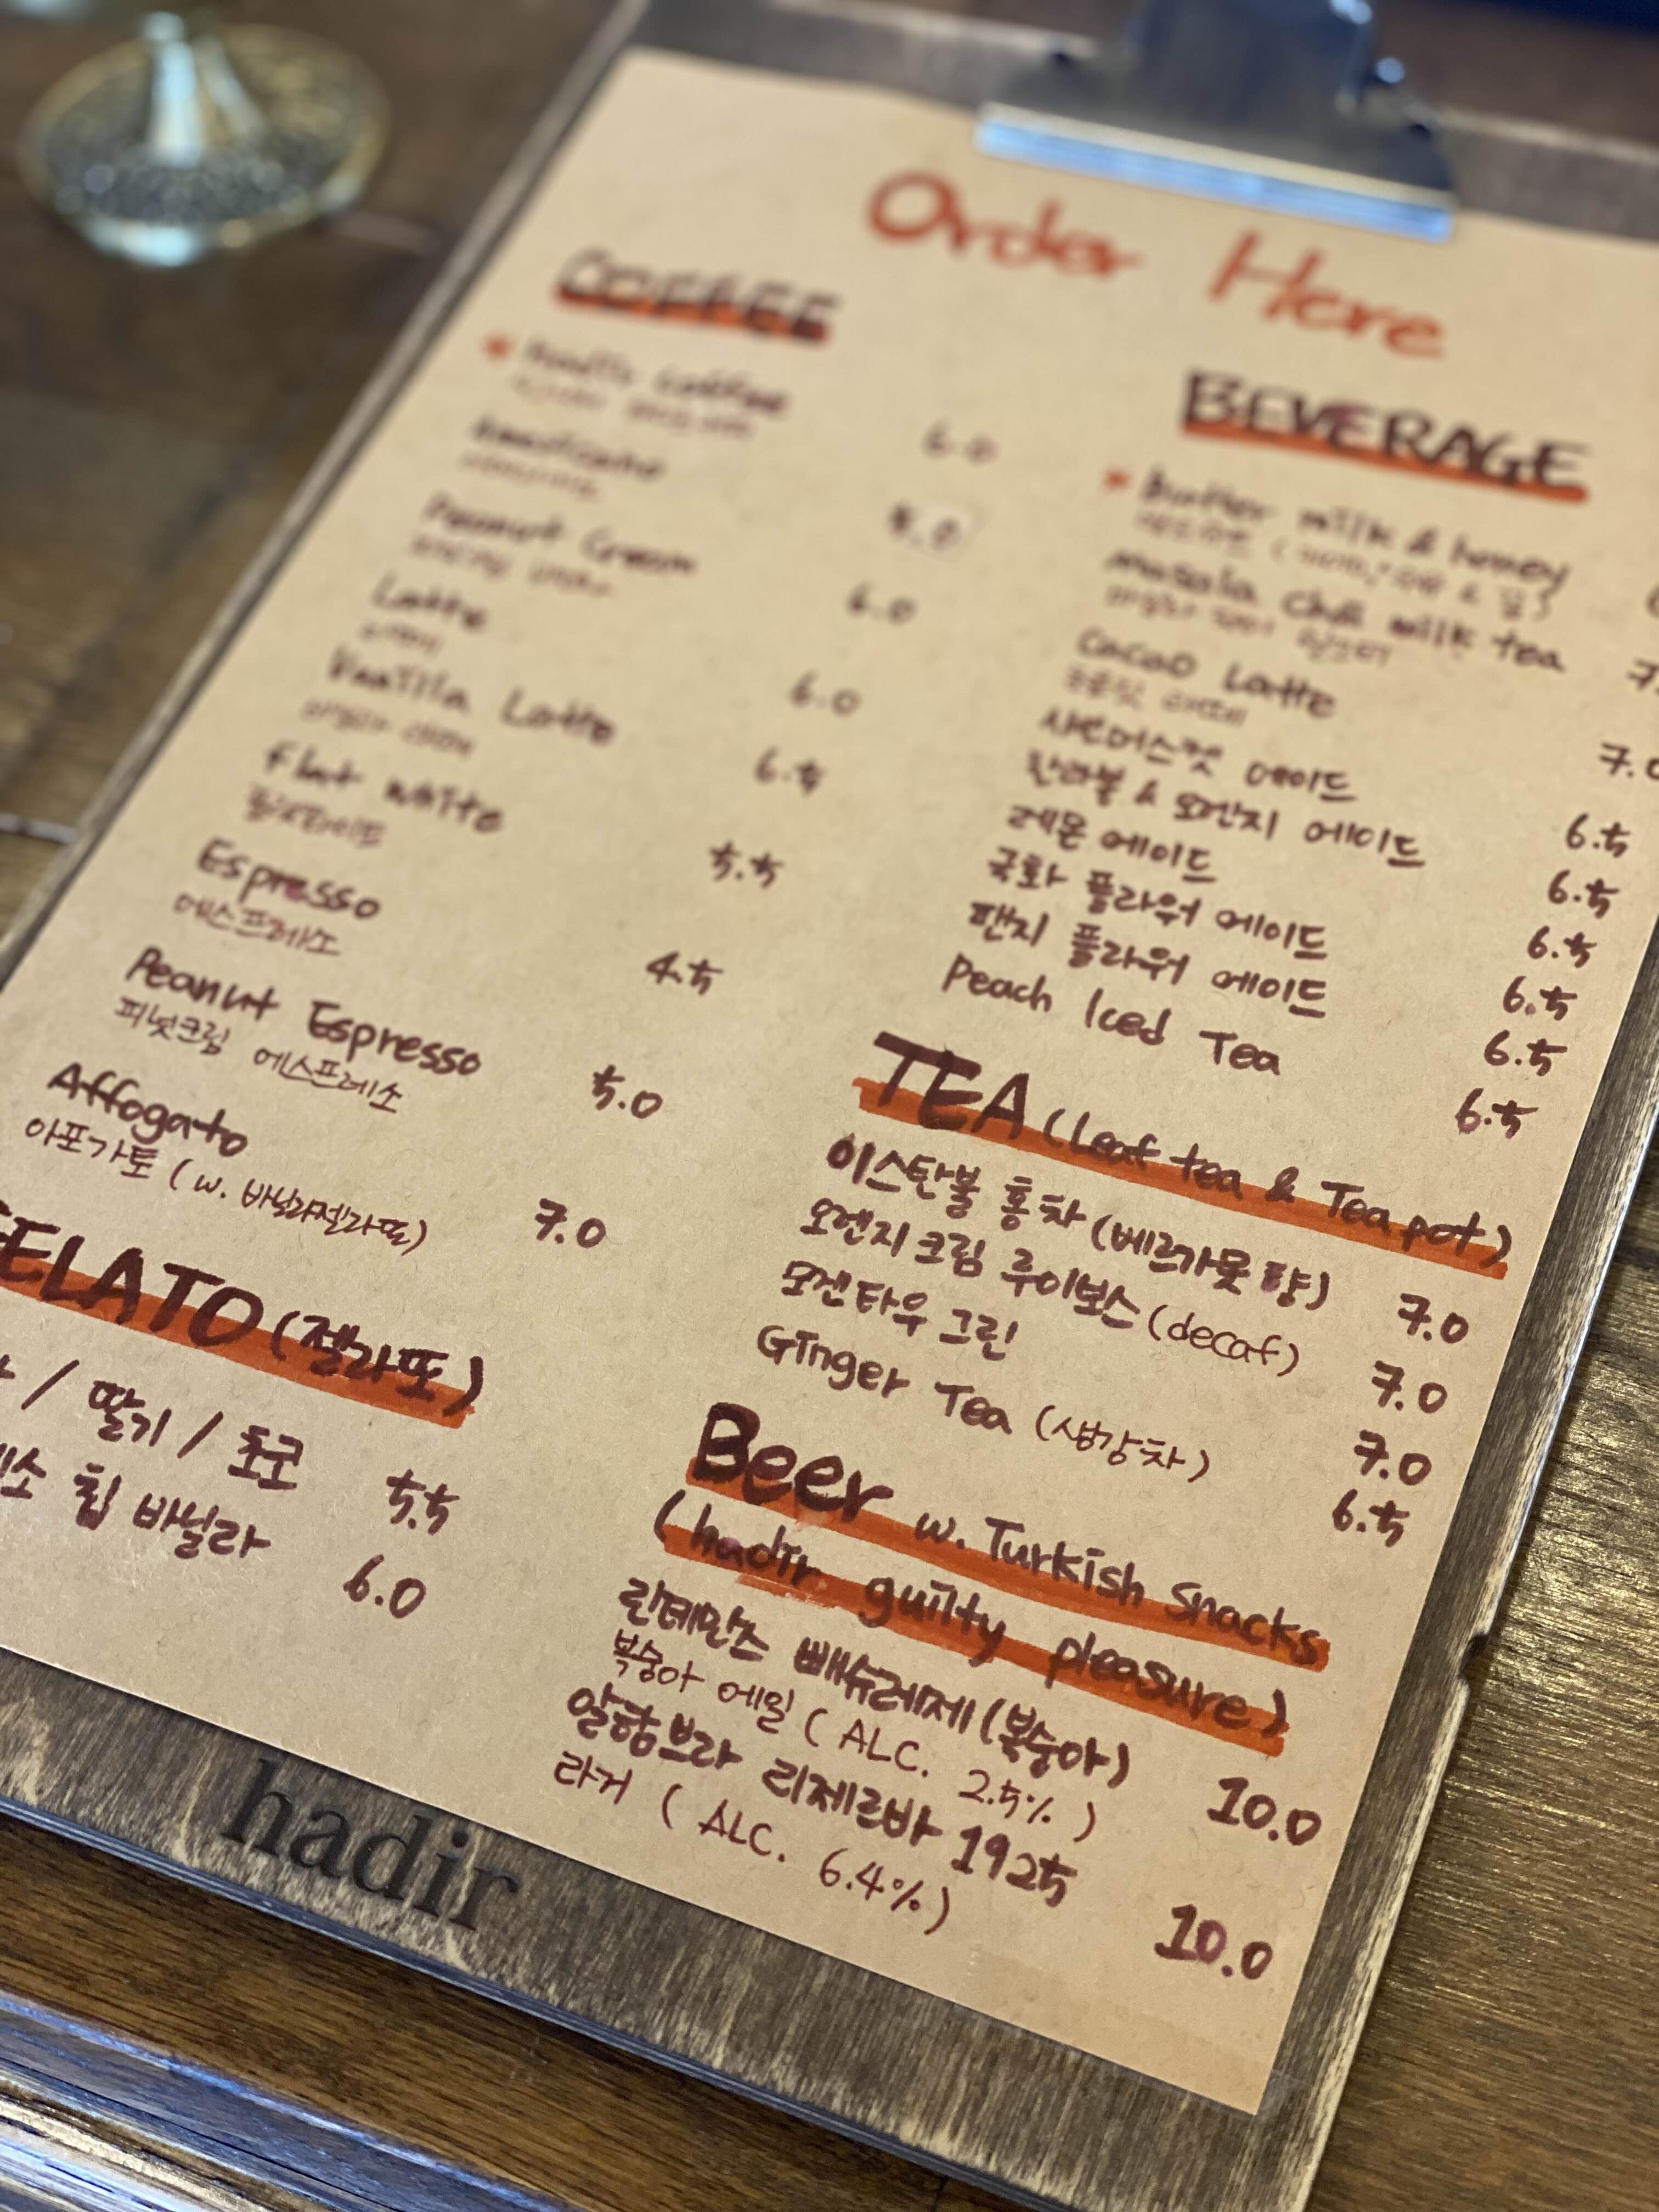 Order Here
COFFEE
coffee
6.0
Americano
5.0
Peanut Cream
6.0
Latte
라떼
6.0
Vanilla Latte
바닐라 라떼
6.5
Flat White
플랫화이트
5.5
Espresso
에스프레소
4.5
Peanut Espresso
피넛크림 에스프레소
5.0
Affogato
아포가토 (w. 바닐라젤라또)
7.0
GELATO (젤라또)
/ 딸기 / 초코 5.5
칩 바닐라 6.0
BEVERAGE
Butter milk & honey
Masala Chai milk tea
마살라 짜이 밀크티
Cacao Latte
초콜릿 라떼
7.0
샤인머스켓 에이드 6.5
한라봉 & 오렌지 에이드 6.5
레몬 에이드 6.5
국화 플라워 에이드 6.5
팬지 플라워 에이드 6.5
Peach Iced Tea 6.5
TEA (Leaf tea & Tea pot)
이스탄불 홍차 (베르가못 향) 7.0
오렌지 크림 루이보스 (decaf) 7.0
모겐타우 그린 7.0
Ginger Tea (생강차) 6.5
Beer w. Turkish Snacks
(hadir guilty pleasure)
린데만스 빼슈레제 (복숭아) 10.0
복숭아 에일 (ALC. 2.5%)
알함브라 리제르바 1925 10.0
라거 (ALC. 6.4%)
hadir